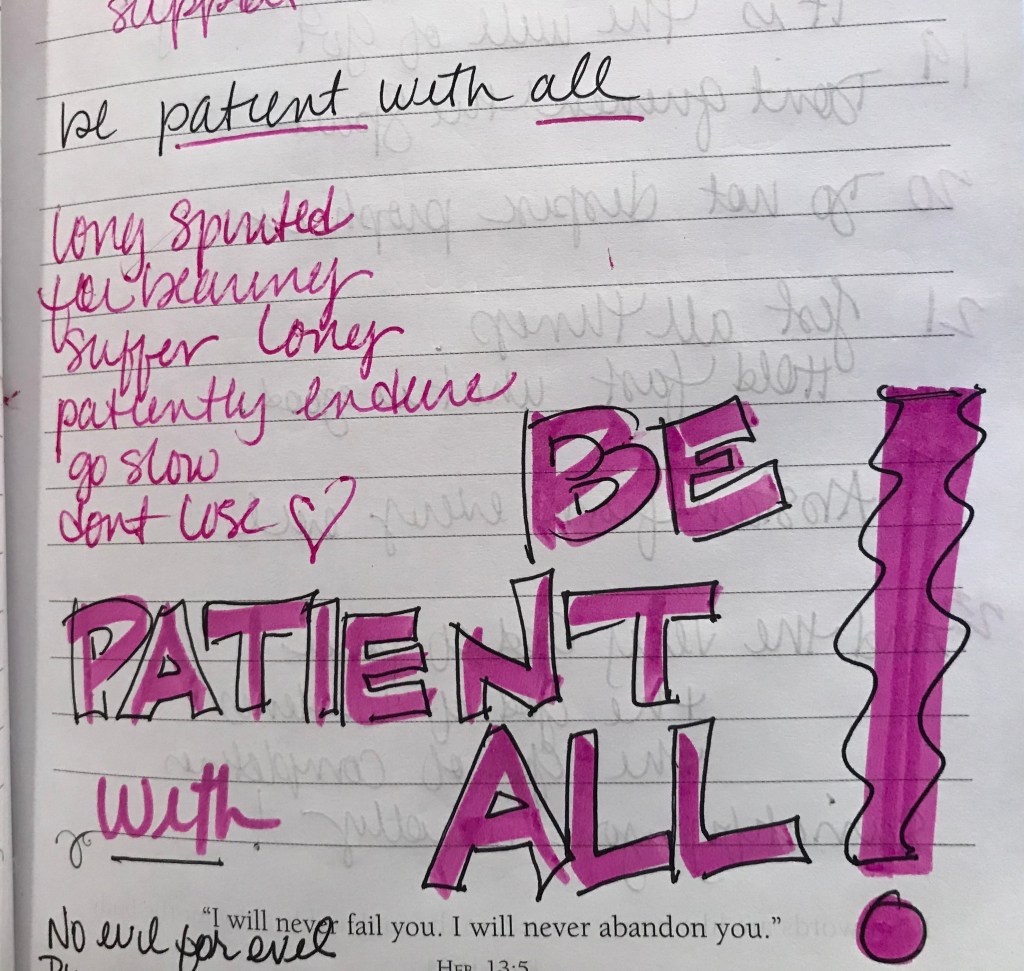 support
be patient with all
long spirited
forbearing
suffer long
patiently endure
go slow
dont lose ♡
BE
PATIENT
with ALL!
No evil for evil
“I will never fail you. I will never abandon you.”
HEB. 13:5